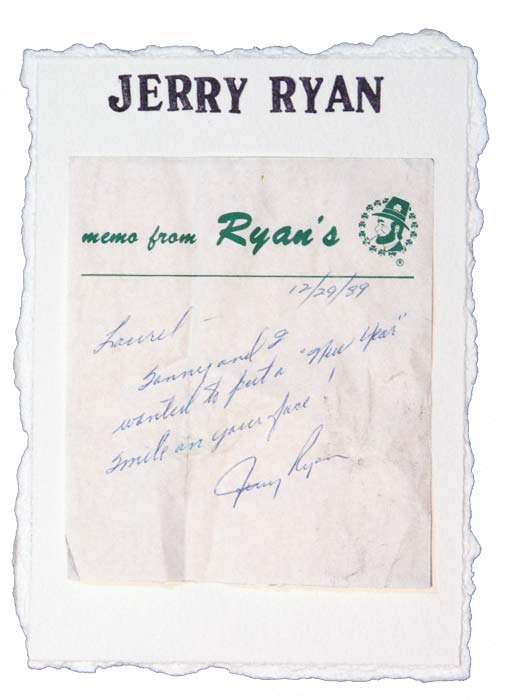 JERRY RYAN
memo from Ryan's
®
12/29/89
Laurel –
Sonny and I
wanted to put a "New Year"
smile on your face!
Jerry Ryan